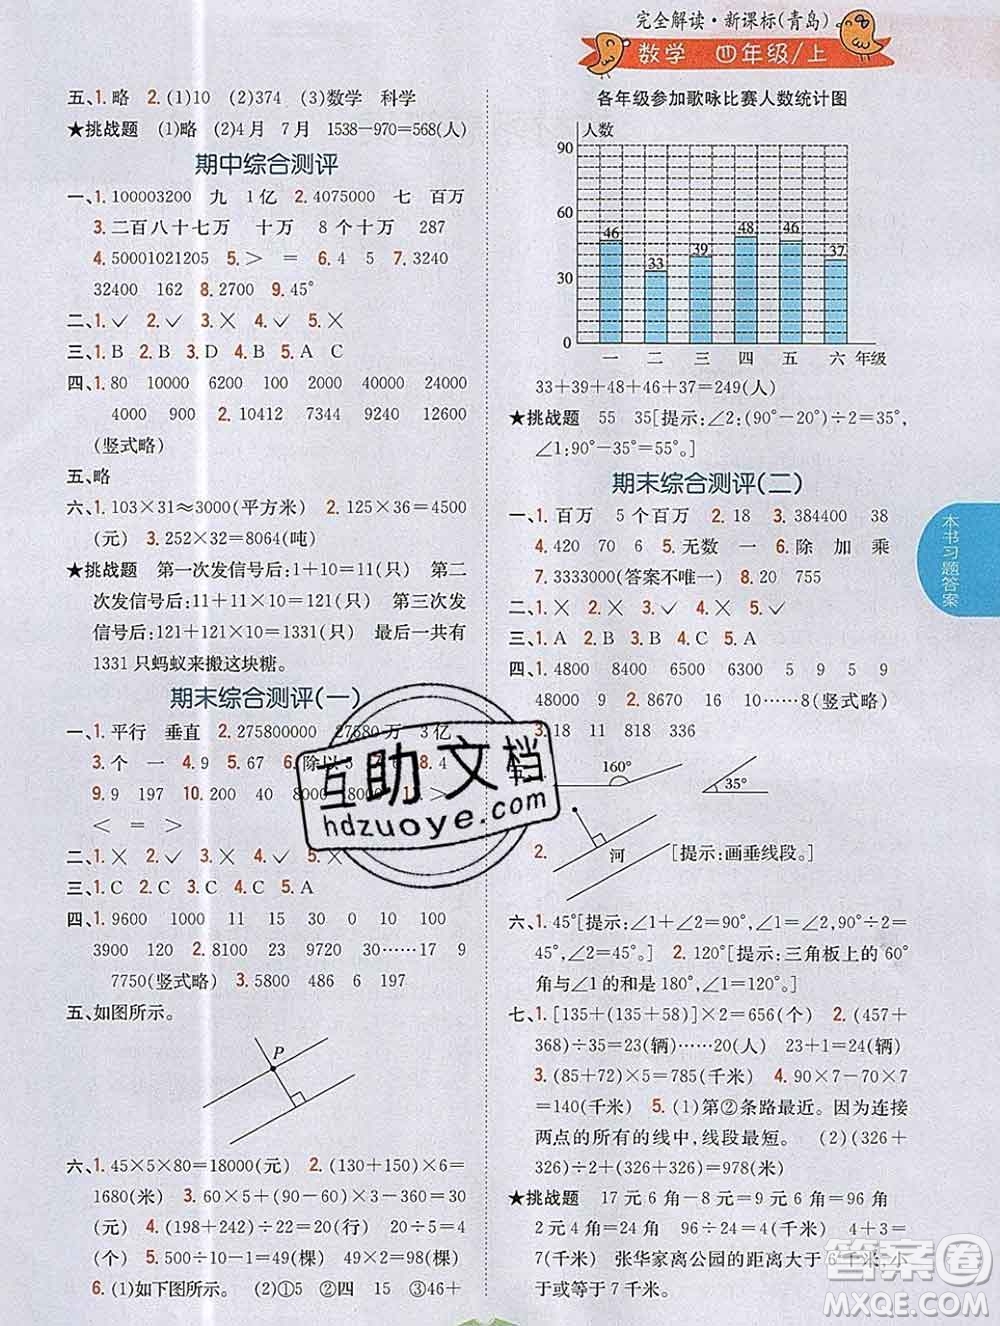 完全解读·新课标(青岛)
数学 四年级/上
五、1.略 2.(1)10 (2)374 (3)数学 科学
★挑战题 (1)略 (2)4月 7月 1538-970=568(人)
期中综合测评
一、1.100003200 九 1亿 2.4075000 七 百万
3.二百八十七万 十万 8个十万 287
4.50001021205 5.> = 6.4 5 7.3240
32400 162 8.2700 9.45°
二、1.✓ 2.✓ 3.× 4.✓ 5.×
三、1.B 2.B 3.D 4.B 5.A C
四、1.80 10000 6200 100 40000 24000
4000 900 2.10412 7344 9240 12600
(竖式略)
五、略
六、1.103×31≈3000(平方米) 2.125×36=4500
(元) 3.252×32=8064(吨)
★挑战题 第一次发信号后:1+10=11(只) 第二
次发信号后:11+11×10=121(只) 第三次发
信号后:121+121×10=1331(只) 最后一共有
1331只蚂蚁来搬这块糖。
期末综合测评(一)
一、1.平行 垂直 2.275800000 27580万 3亿
3.个 一 4.9 5.67 6.除以3 7.6 8.4
9.9 197 10.200 40 8000 18000 11.>
< = >
二、1.✓ 2.× 3.✓ 4.× 5.✓
三、1.C 2.C 3.C 4.B 5.C
四、1.9600 1000 11 15 30 0 6400
3900 120 2.8100 23 9720 30……17 9
7750(竖式略) 3.5800 486 6 197
五、如图所示。
P
六、1.45×5×80=18000(元) 2.(130+150)×6=
1680(米) 3.480÷6=80(元) 9×3-360=30
(元) 4.(198+242)÷22=20(行) 20÷5=4
(个) 5.500÷10-1=49(棵) 49×2=98(棵)
6.(1)如下图所示。 (2)①5 ②四 ③46+
各年级参加歌咏比赛人数统计图
人数
90
60
30
0
46 33 39 48 46 37
一 二 三 四 五 六 年级
33+39+48+46+37=249(人)
★挑战题 55 35[提示:∠2:(90°-20°)÷2=35°,
∠1:90°-35°=55°。]
期末综合测评(二)
一、1.百万 5个百万 2.18 3.384400 38
4.420 70 6 5.无数 一 6.除 加 乘
7.3333000(答案不唯一) 8.20 755
二、1.× 2.× 3.✓ 4.✓ 5.×
三、1.A 2.B 3.B 4.C 5.A
四、1.4800 8400 6600 5 9 5 9
5500 9 2.8670 30……8(竖式略)
3.18 11 818 336
160° 35°
2. 河 [提示:画垂线段。]
六、1.45°[提示:∠1+∠2=90°,∠1=90°÷2=
45°,∠2=45°。] 2.120°[提示:三角板上的60°
角与∠1的和是180°。]
七、1.[135+(135+58)]×2=656(个) 2.(457+
368)÷35=23(辆)……20(辆) 23+1=24(辆)
3.(85+72)×5=785(千米) 4.90×7-70×7
=140(千米) 5.(1)第②条路最近。因为连接
两点的所有的线中,线段最短。 (2)(326+
326)÷2=326(米) 326+326+326=978(米)
★挑战题 17元6角-8元=9元6角=96角
2元4角=24角 96÷24=4(千米) 4+3=
7(千米) 张华家离公园的距离大于6千米,小
于或等于7千米。
本书习题答案
互助文档
hdzuoye.com
答案圈
MXQE.COM